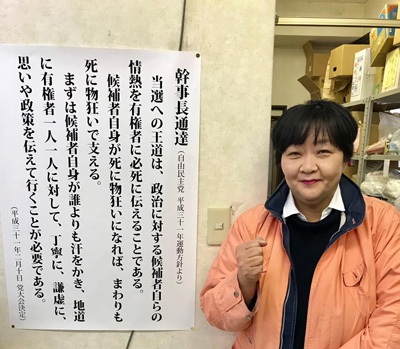 幹事長通達
(自由民主党 平成三十一年運動方針より)
当選への王道は、政治に対する候補者自らの
情熱を有権者に必死に伝えることである。
候補者自身が死に物狂いになれば、まわりも
死に物狂いで支える。
まずは候補者自身が誰よりも汗をかき、地道
に有権者一人一人に対して、丁寧に、謙虚に、
思いや政策を伝えて行くことが必要である。
(平成三十一年二月十日 党大会決定)